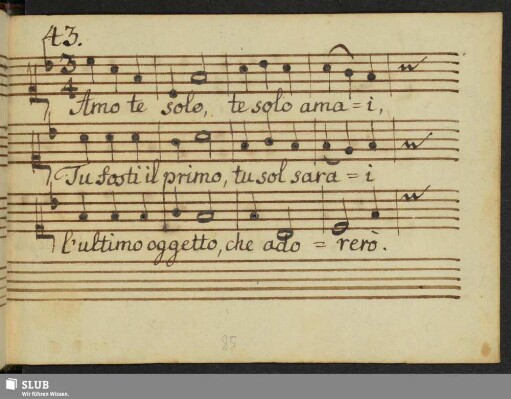 43.
3
4
Amo te solo, te solo ama=i,
Tu fosti il primo, tu sol sara=i
l'ultimo oggetto, che ado=rerò.
85
SLUB
Wir führen Wissen.